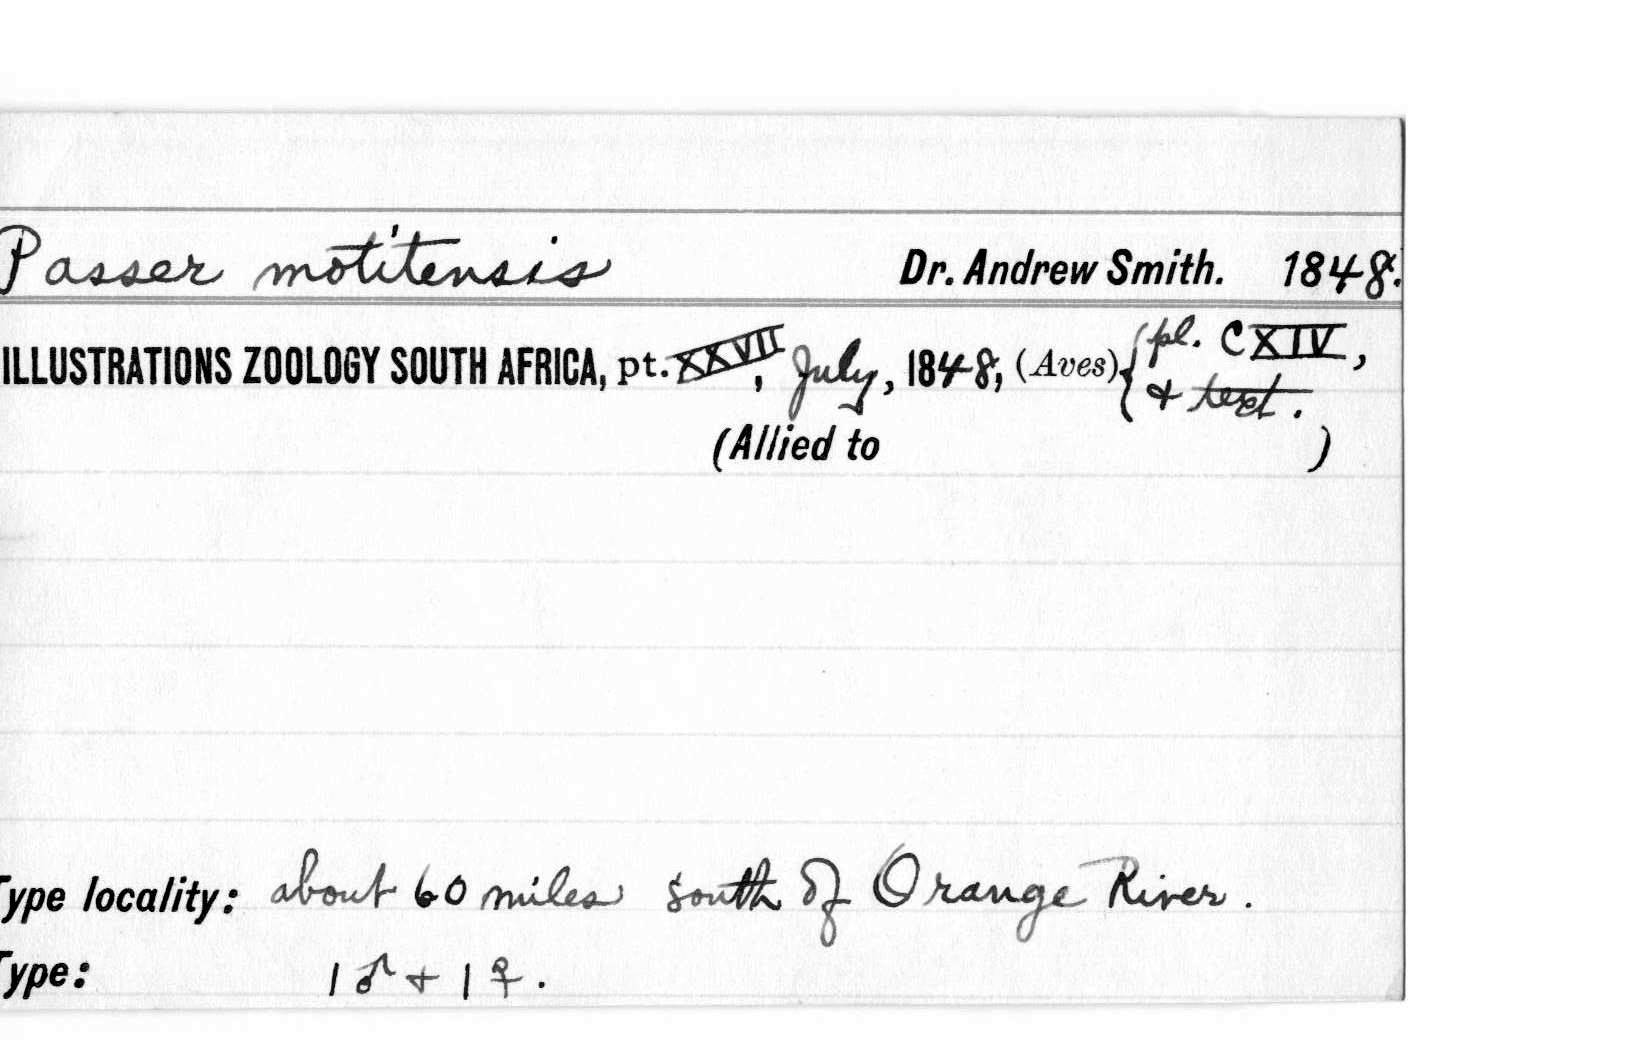 Passer motitensis Dr. Andrew Smith. 1848.
ILLUSTRATIONS ZOOLOGY SOUTH AFRICA, pt. XXVII, July, 1848, (Aves) { pl. CXIV,
& text.
(Allied to )
Type locality: about 60 miles south of Orange River.
Type: 1 ♂ + 1 ♀.